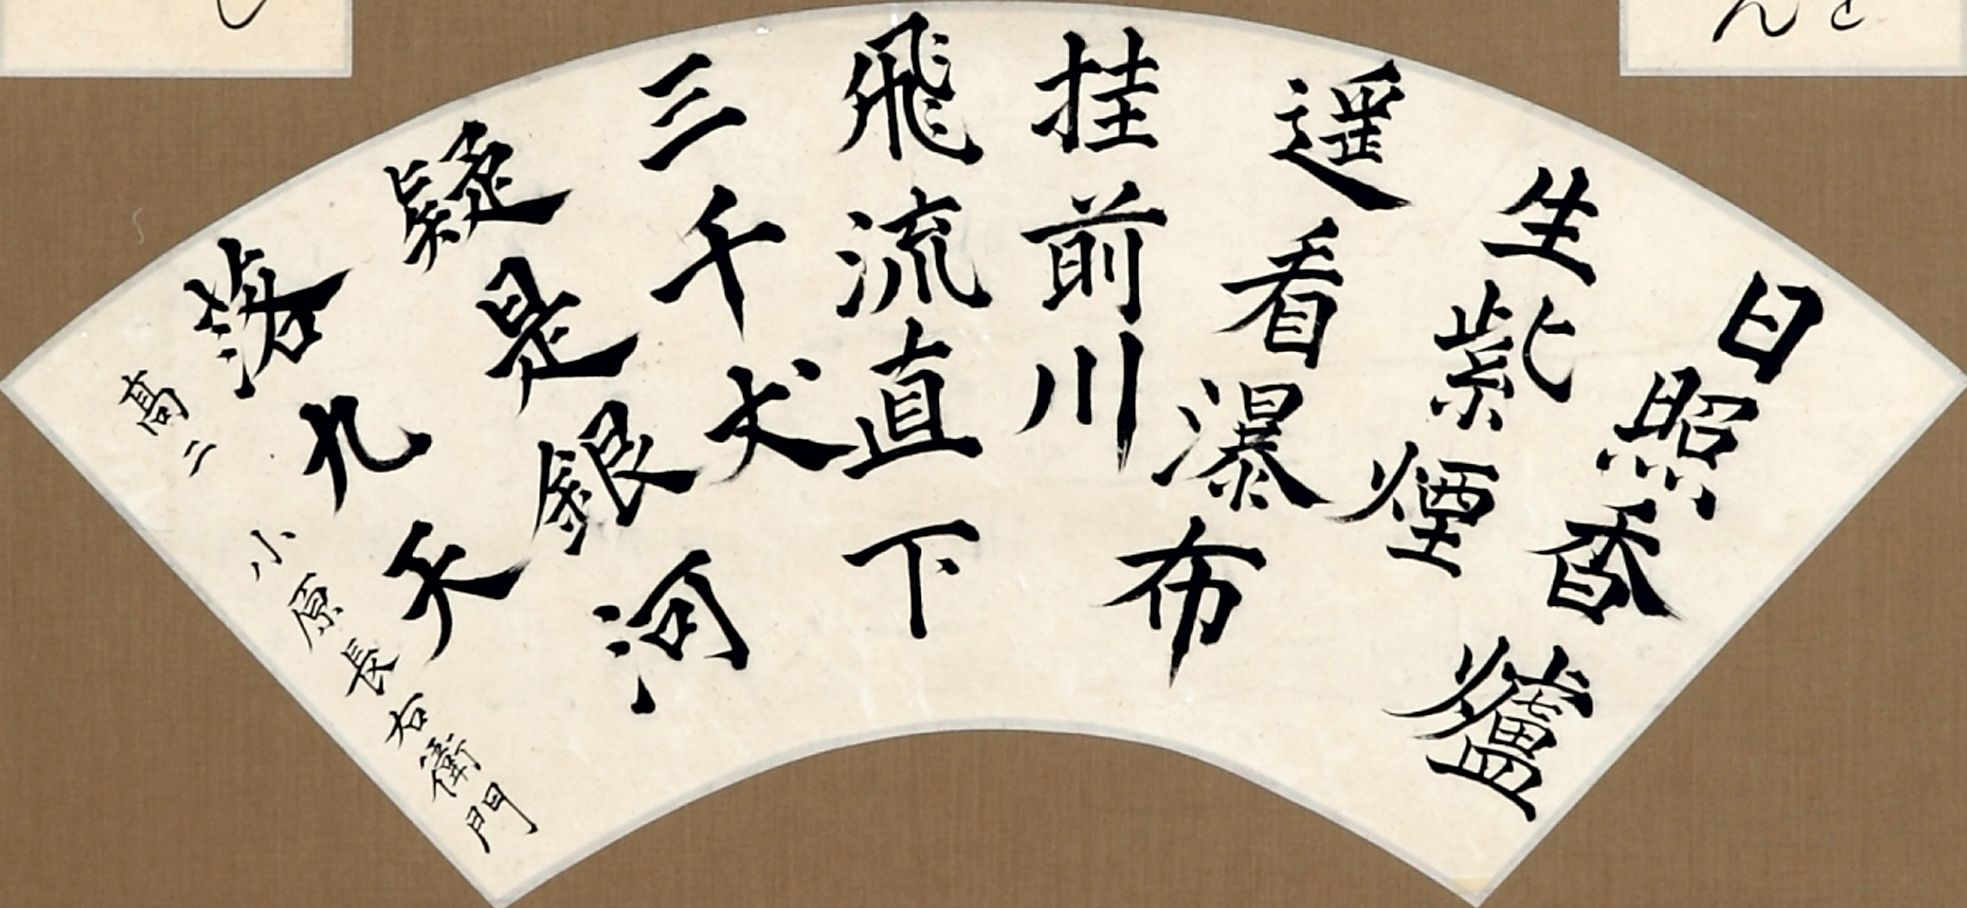 日照香爐
生紫煙
遥看瀑布
挂前川
飛流直下
三千丈
疑是銀河
落九天
高二 小原長右衛門